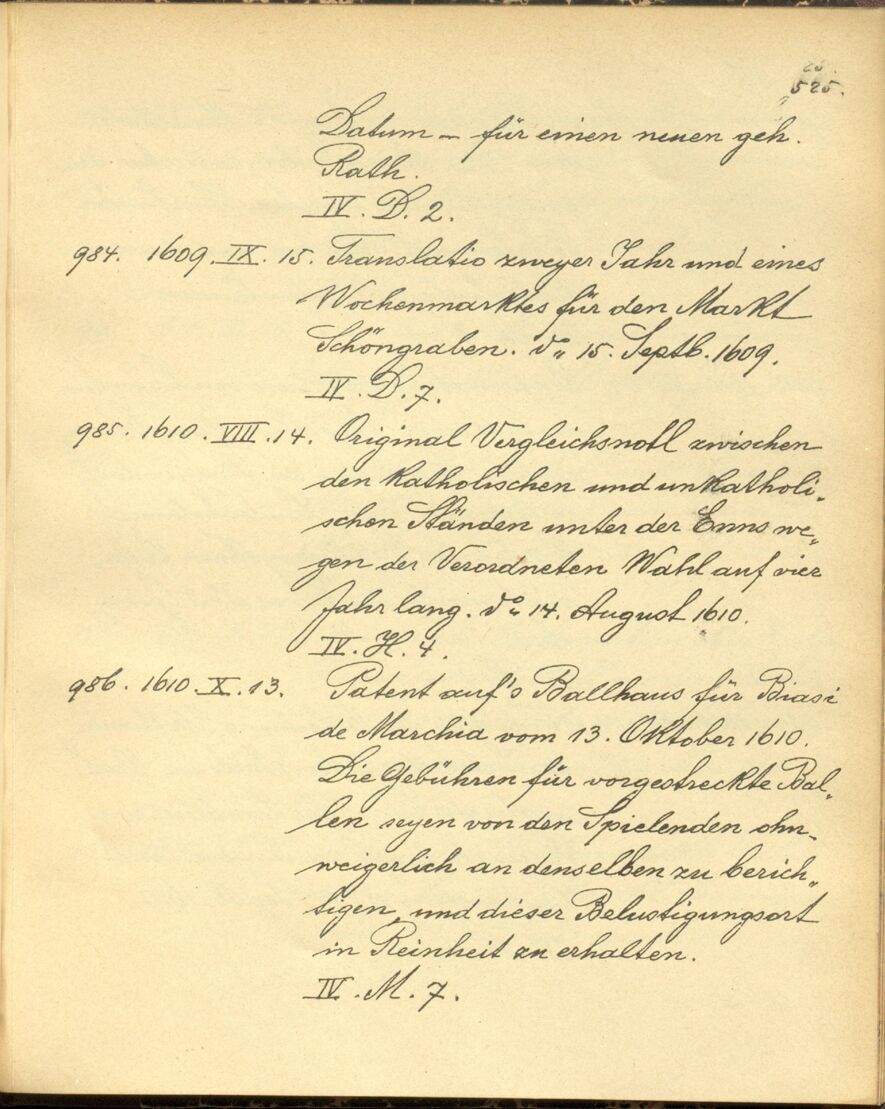 525.
Datum – für einen neuen geh.
Rath.
IV. D. 2.
984. 1609. IX. 15. Translatio zweyer Jahr und eines
Wochenmarktes für den Markt
Schöngraben. do 15. Septb. 1609.
IV. D. 7.
985. 1610. VIII. 14. Original Vergleichsnotl zwischen
den katholischen und unkatholi„
schen Ständen unter der Enns we„
gen der Verordneten Wahl auf vier
Jahr lang. do 14. August 1610.
IV. H. 4.
986. 1610. X. 13. Patent auf's Ballhaus für Biasi
de Marchia vom 13. Oktober 1610.
Die Gebühren für vorgestreckte Bal„
len seyen von den Spielenden ohn„
weigerlich an denselben zu berich„
tigen, und dieser Belustigungsort
in Reinheit zu erhalten.
IV. M. 7.